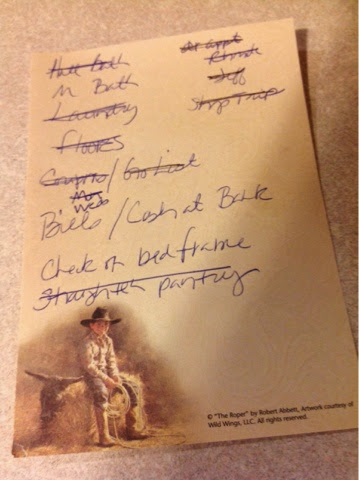 Hall Bath
M Bath
Laundry
Floors
Coupons/Gro List
Mos
Web
Bills/Cash at Bank
Check on bed frame
Straighten pantry
dr appt
Jeff
Shop Trip
© "The Roper" by Robert Abbett, Artwork courtesy of
Wild Wings, LLC. All rights reserved.